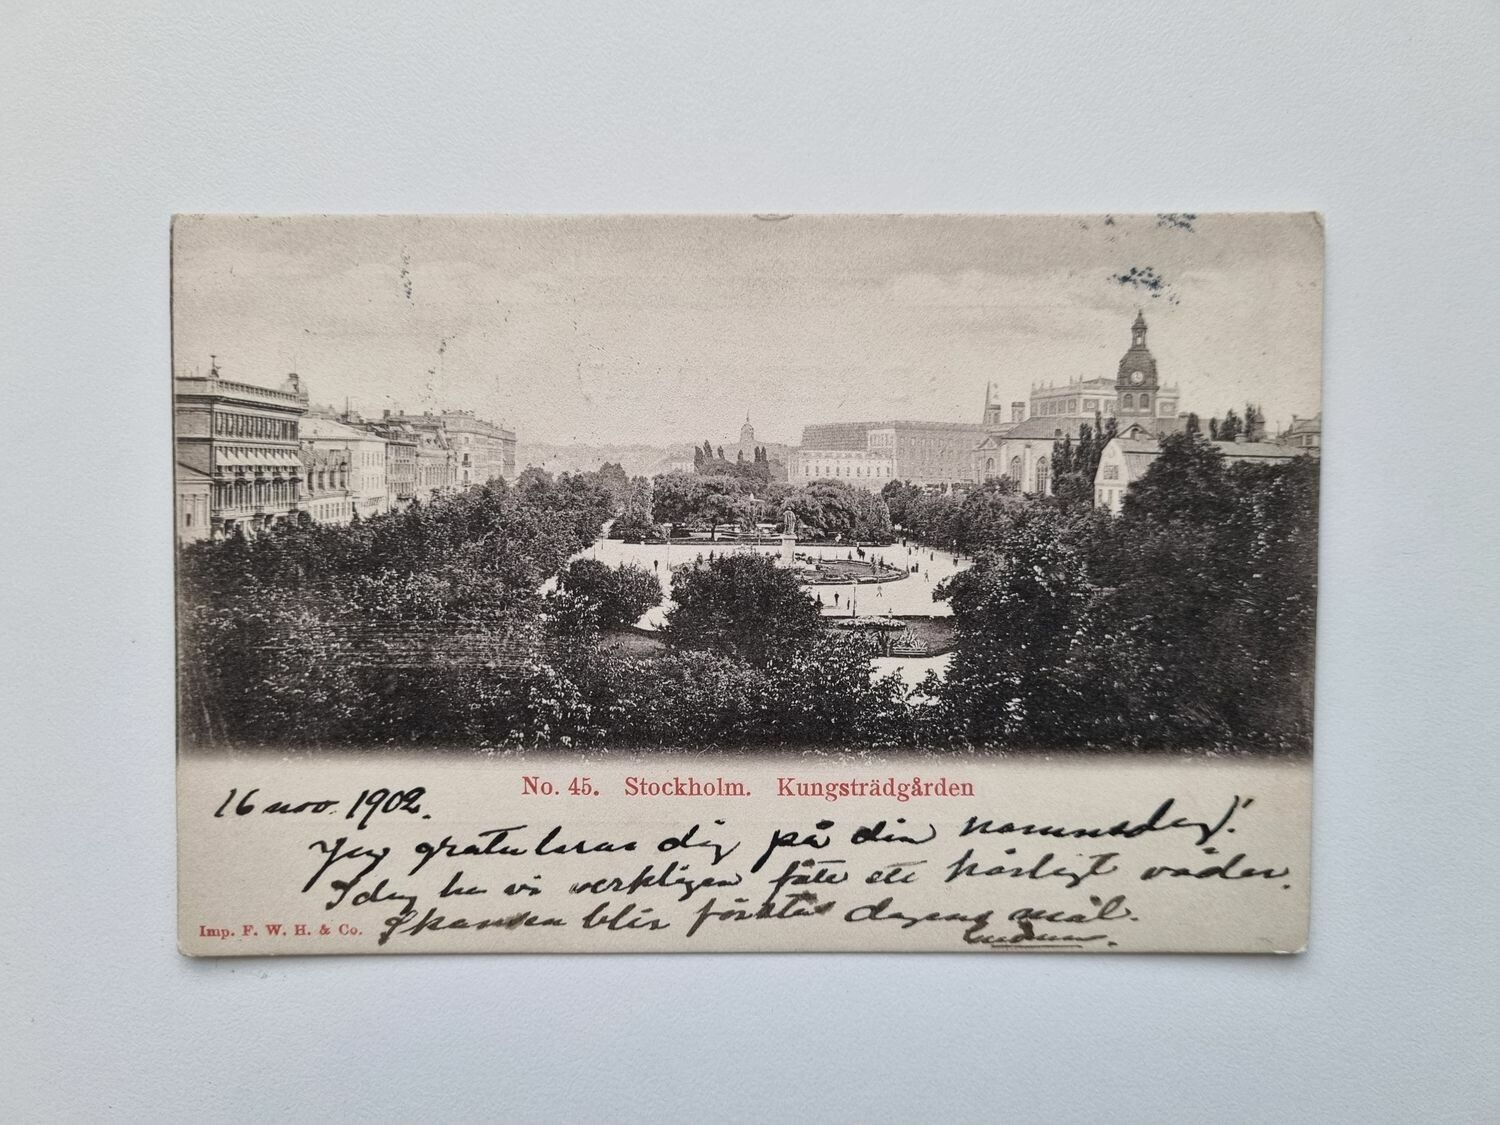 No. 45. Stockholm. Kungsträdgården
16 nov. 1902.
Jag gratuleras dig på din namnsdag!
Idag ha vi verkligen ett härligt väder.
Skansen blir förstås dagens mål.
Imp. F. W. H. & Co.